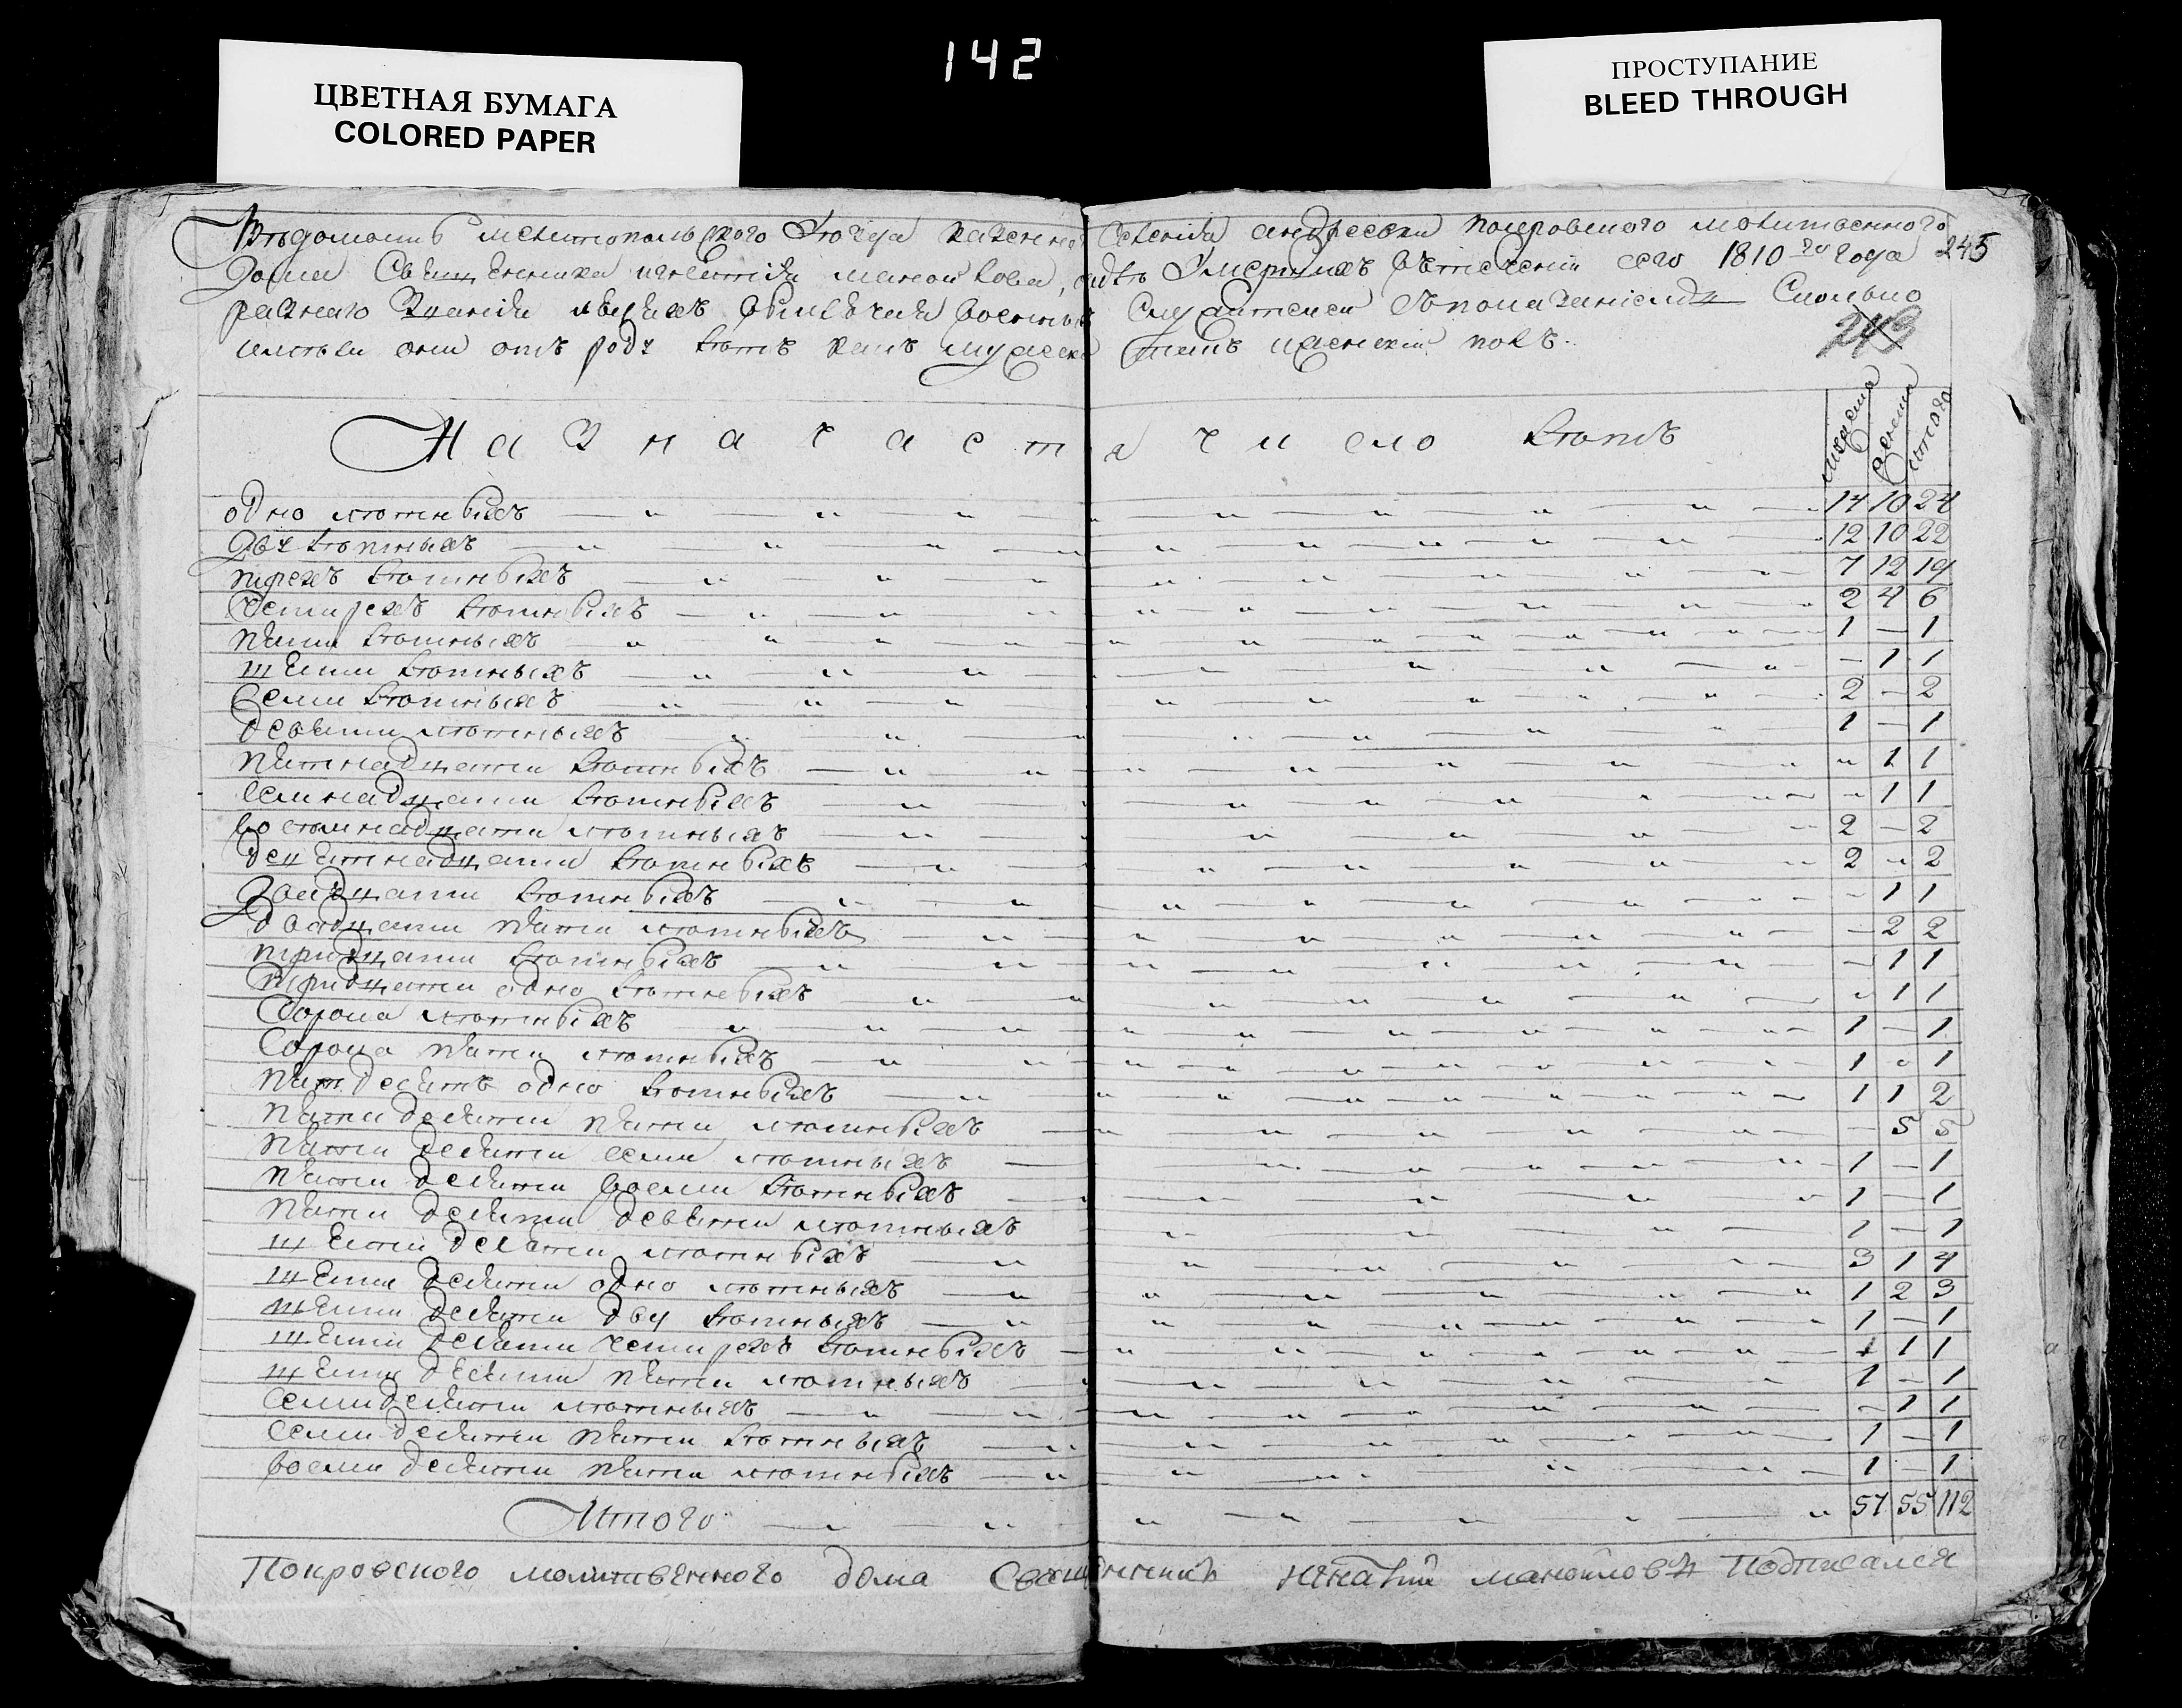 142
ЦВЕТНАЯ БУМАГА
COLORED PAPER
ПРОСТУПАНИЕ
BLEED THROUGH
Вѣдомость мелитопольского уезда казенно селенія андреевки покровского молитвенного
дома священника игнатія манойлова, умершихъ втеченіи сего 1810 го года 245
разнаго званія людехъ военныхъ служителей спопоказаніемъ сколько
имели они отъ роду летъ какъ мужеска такъ и женскій полъ.
243
Назначается число летъ мужеска женска итого
одно летнихъ 14 10 24
дву летнихъ 12 10 22
трехъ летнихъ 7 12 19
четирехъ летнихъ 2 4 6
пяти летнихъ 1 — 1
шести летнихъ — 1 1
семи летнихъ 2 — 2
девяти летнихъ 1 — 1
пятнадцати летнихъ „ 1 1
семнадцати летнихъ „ 1 1
восемнадцати летнихъ 2 — 2
девятнадцати летнихъ 2 „ 2
двадцати летнихъ — 1 1
двадцати пяти летнихъ — 2 2
тридцати летнихъ — 1 1
тридцати одно летнихъ „ 1 1
сорока летнихъ 1 — 1
сорока пяти летнихъ 1 „ 1
пятдесятъ одно летнихъ 1 1 2
пяти десяти пяти летнихъ — 5 5
пяти десяти семи летнихъ 1 — 1
пяти десяти восми летнихъ 1 — 1
пяти десяти девяти летнихъ 1 — 1
шести десяти летнихъ 3 1 4
шести десяти одно летнихъ 1 2 3
шести десяти дву летнихъ 1 — 1
шести десяти четирехъ летнихъ 1 1
шести десяти пяти летнихъ 1 — 1
семи десяти летнихъ — 1 1
семи десяти пяти летнихъ 1 — 1
восми десяти пяти летнихъ 1 — 1
Итого 57 55 112
Покровского молитвенного дома священникъ игнатий манойловъ Подписался